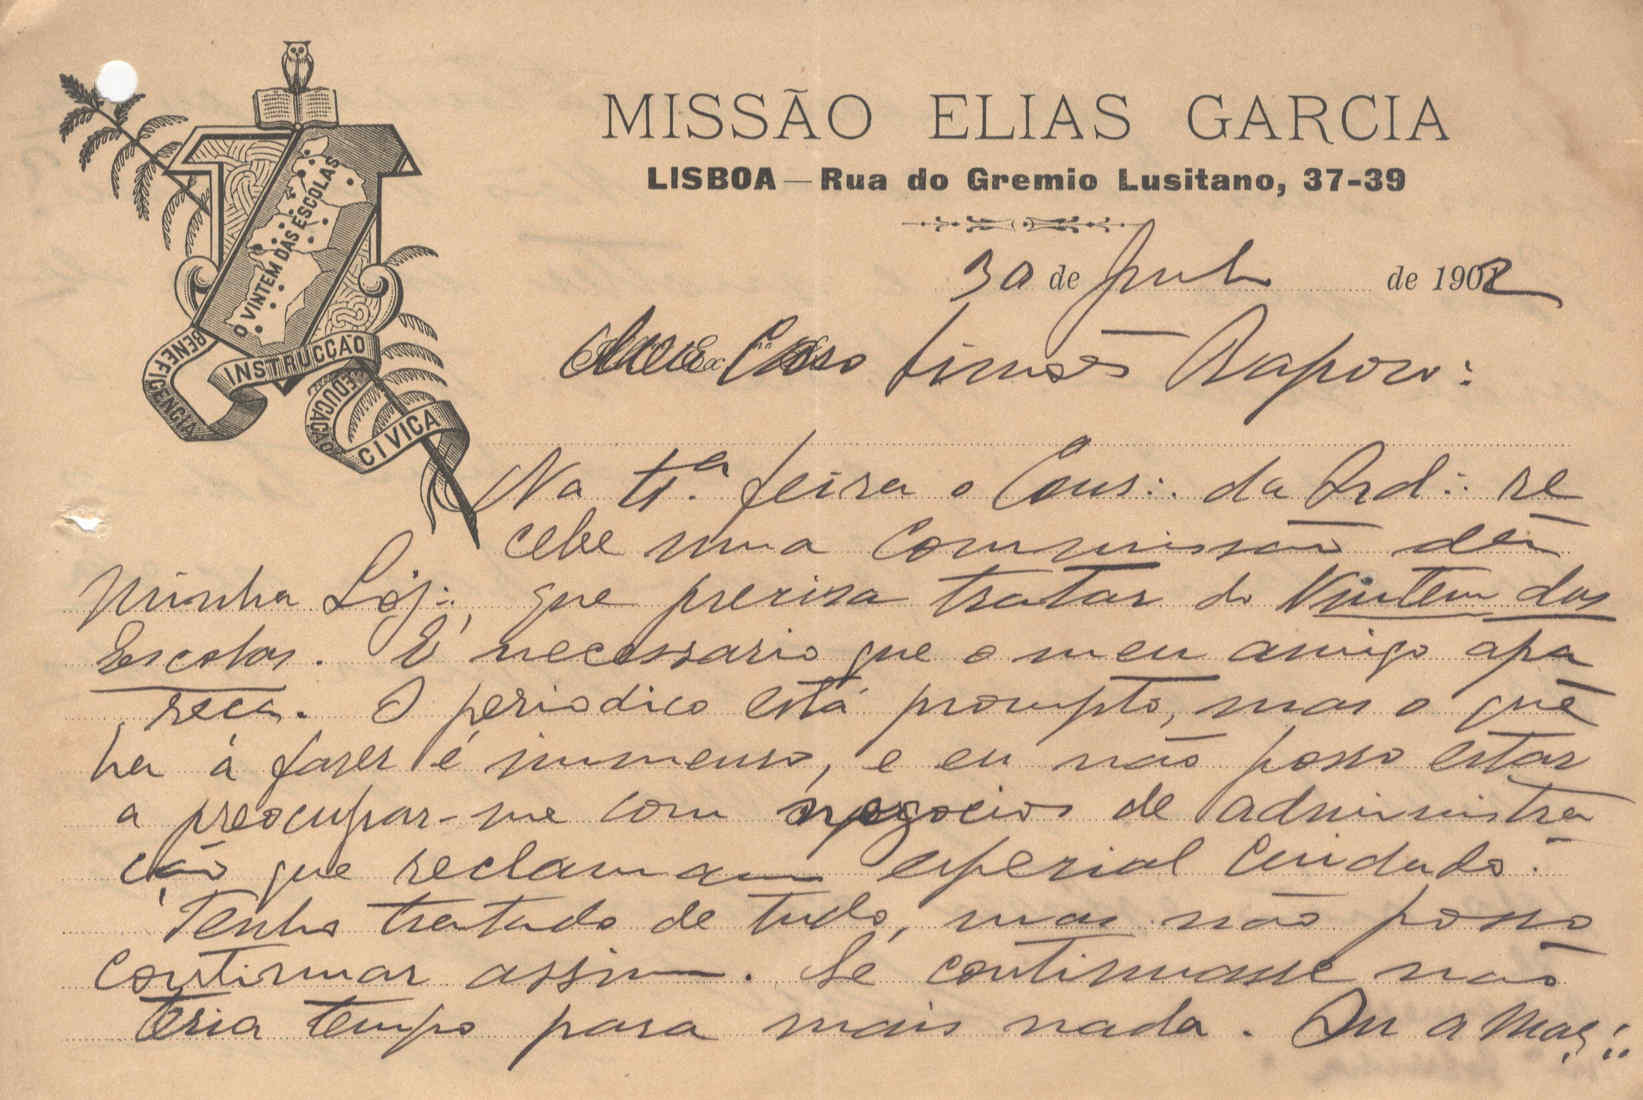 MISSÃO ELIAS GARCIA
LISBOA — Rua do Gremio Lusitano, 37-39
O VINTEM DAS ESCOLAS
BENEFICENCIA
INSTRUCÇÃO
EDUCAÇÃO
CIVICA
30 de Jul de 1902
Meu Caro Simões Raposo:
Na 4.ª feira o Cons∴ da Ord∴ re
cebe uma commissão da
minha Loj∴, que precisa tratar do Vintem das
Escolas. É necessario que o meu amigo apa
reça. O periodico está prompto, mas o que
ha á fazer é immenso, e eu não posso estar
a preocupar-me com negocios de administra
ção que reclamam especial cuidado.
Tenho tratado de tudo, mas não posso
continuar assim. Se continuasse não
teria tempo para mais nada. Ou a Maç∴